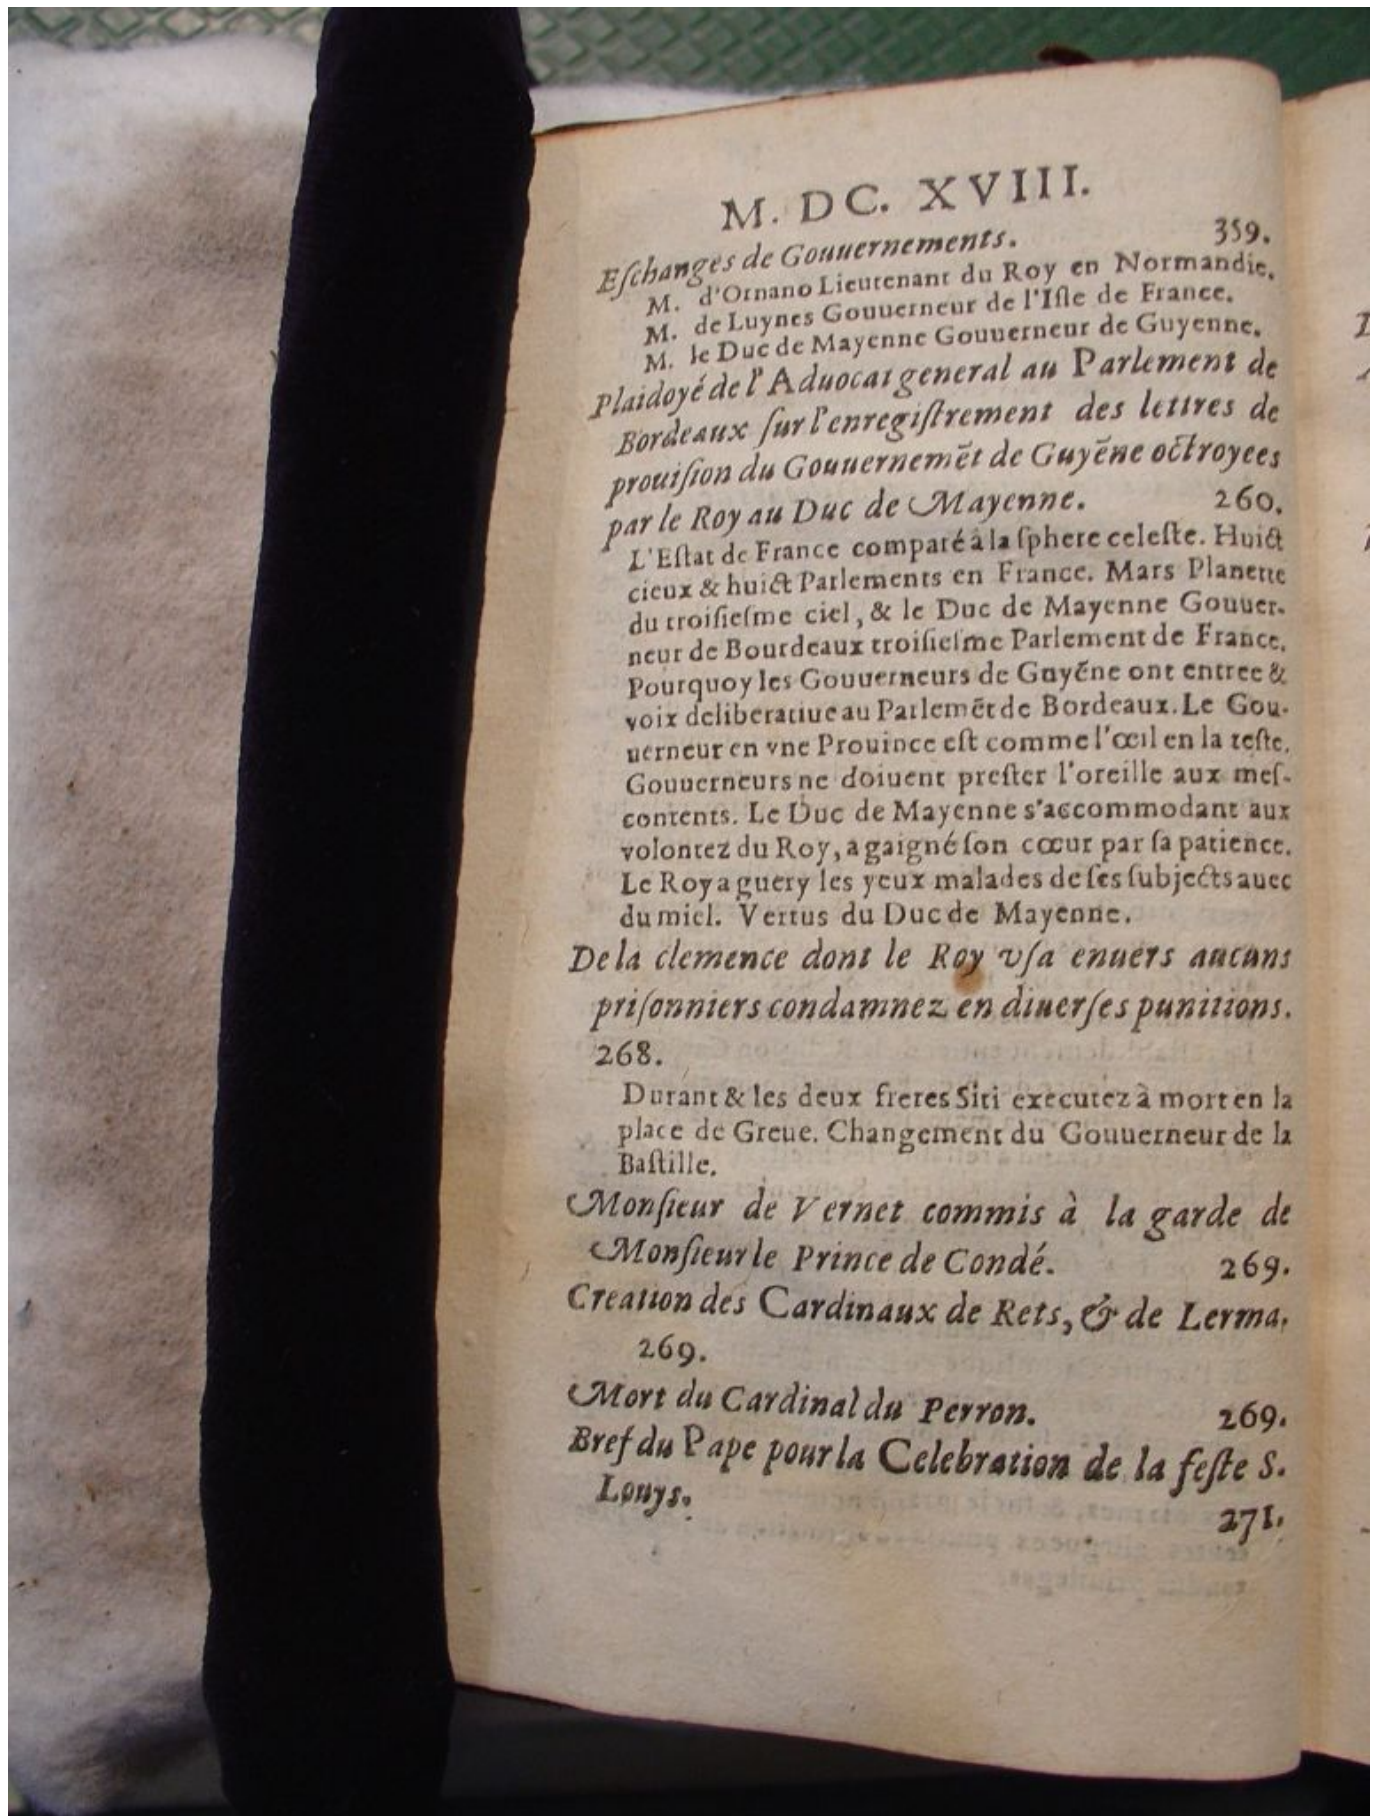 M. DC. XVIII.
Eſchanges de Gouuernements. 359.
M. d'Ornano Lieutenant du Roy en Normandie.
M. de Luynes Gouuerneur de l'Iſle de France.
M. le Duc de Mayenne Gouuerneur de Guyenne.
Plaidoyé de l'Aduocat general au Parlement de
Bordeaux ſur l'enregiſtrement des lettres de
prouiſion du Gouuernemēt de Guyēne octroyees
par le Roy au Duc de Mayenne. 260.
L'Eſtat de France comparé à la ſphere celeſte. Huict
cieux & huict Parlements en France. Mars Planette
du troiſieſme ciel, & le Duc de Mayenne Gouuer-
neur de Bourdeaux troiſieſme Parlement de France.
Pourquoy les Gouuerneurs de Guyēne ont entree &
voix deliberatiue au Parlemēt de Bordeaux. Le Gou-
uerneur en vne Prouince eſt comme l'œil en la teſte.
Gouuerneurs ne doiuent preſter l'oreille aux meſ-
contents. Le Duc de Mayenne s'accommodant aux
volontez du Roy, a gaigné ſon cœur par ſa patience.
Le Roy a guery les yeux malades de ſes ſubjects auec
du miel. Vertus du Duc de Mayenne.
De la clemence dont le Roy vſa enuers aucuns
priſonniers condamnez en diuerſes punitions.
268.
Durant & les deux freres Siti executez à mort en la
place de Greue. Changement du Gouuerneur de la
Baſtille.
Monſieur de Vernet commis à la garde de
Monſieur le Prince de Condé. 269.
Creation des Cardinaux de Rets, & de Lerma.
269.
Mort du Cardinal du Perron. 269.
Bref du Pape pour la Celebration de la feſte S.
Louys. 271.